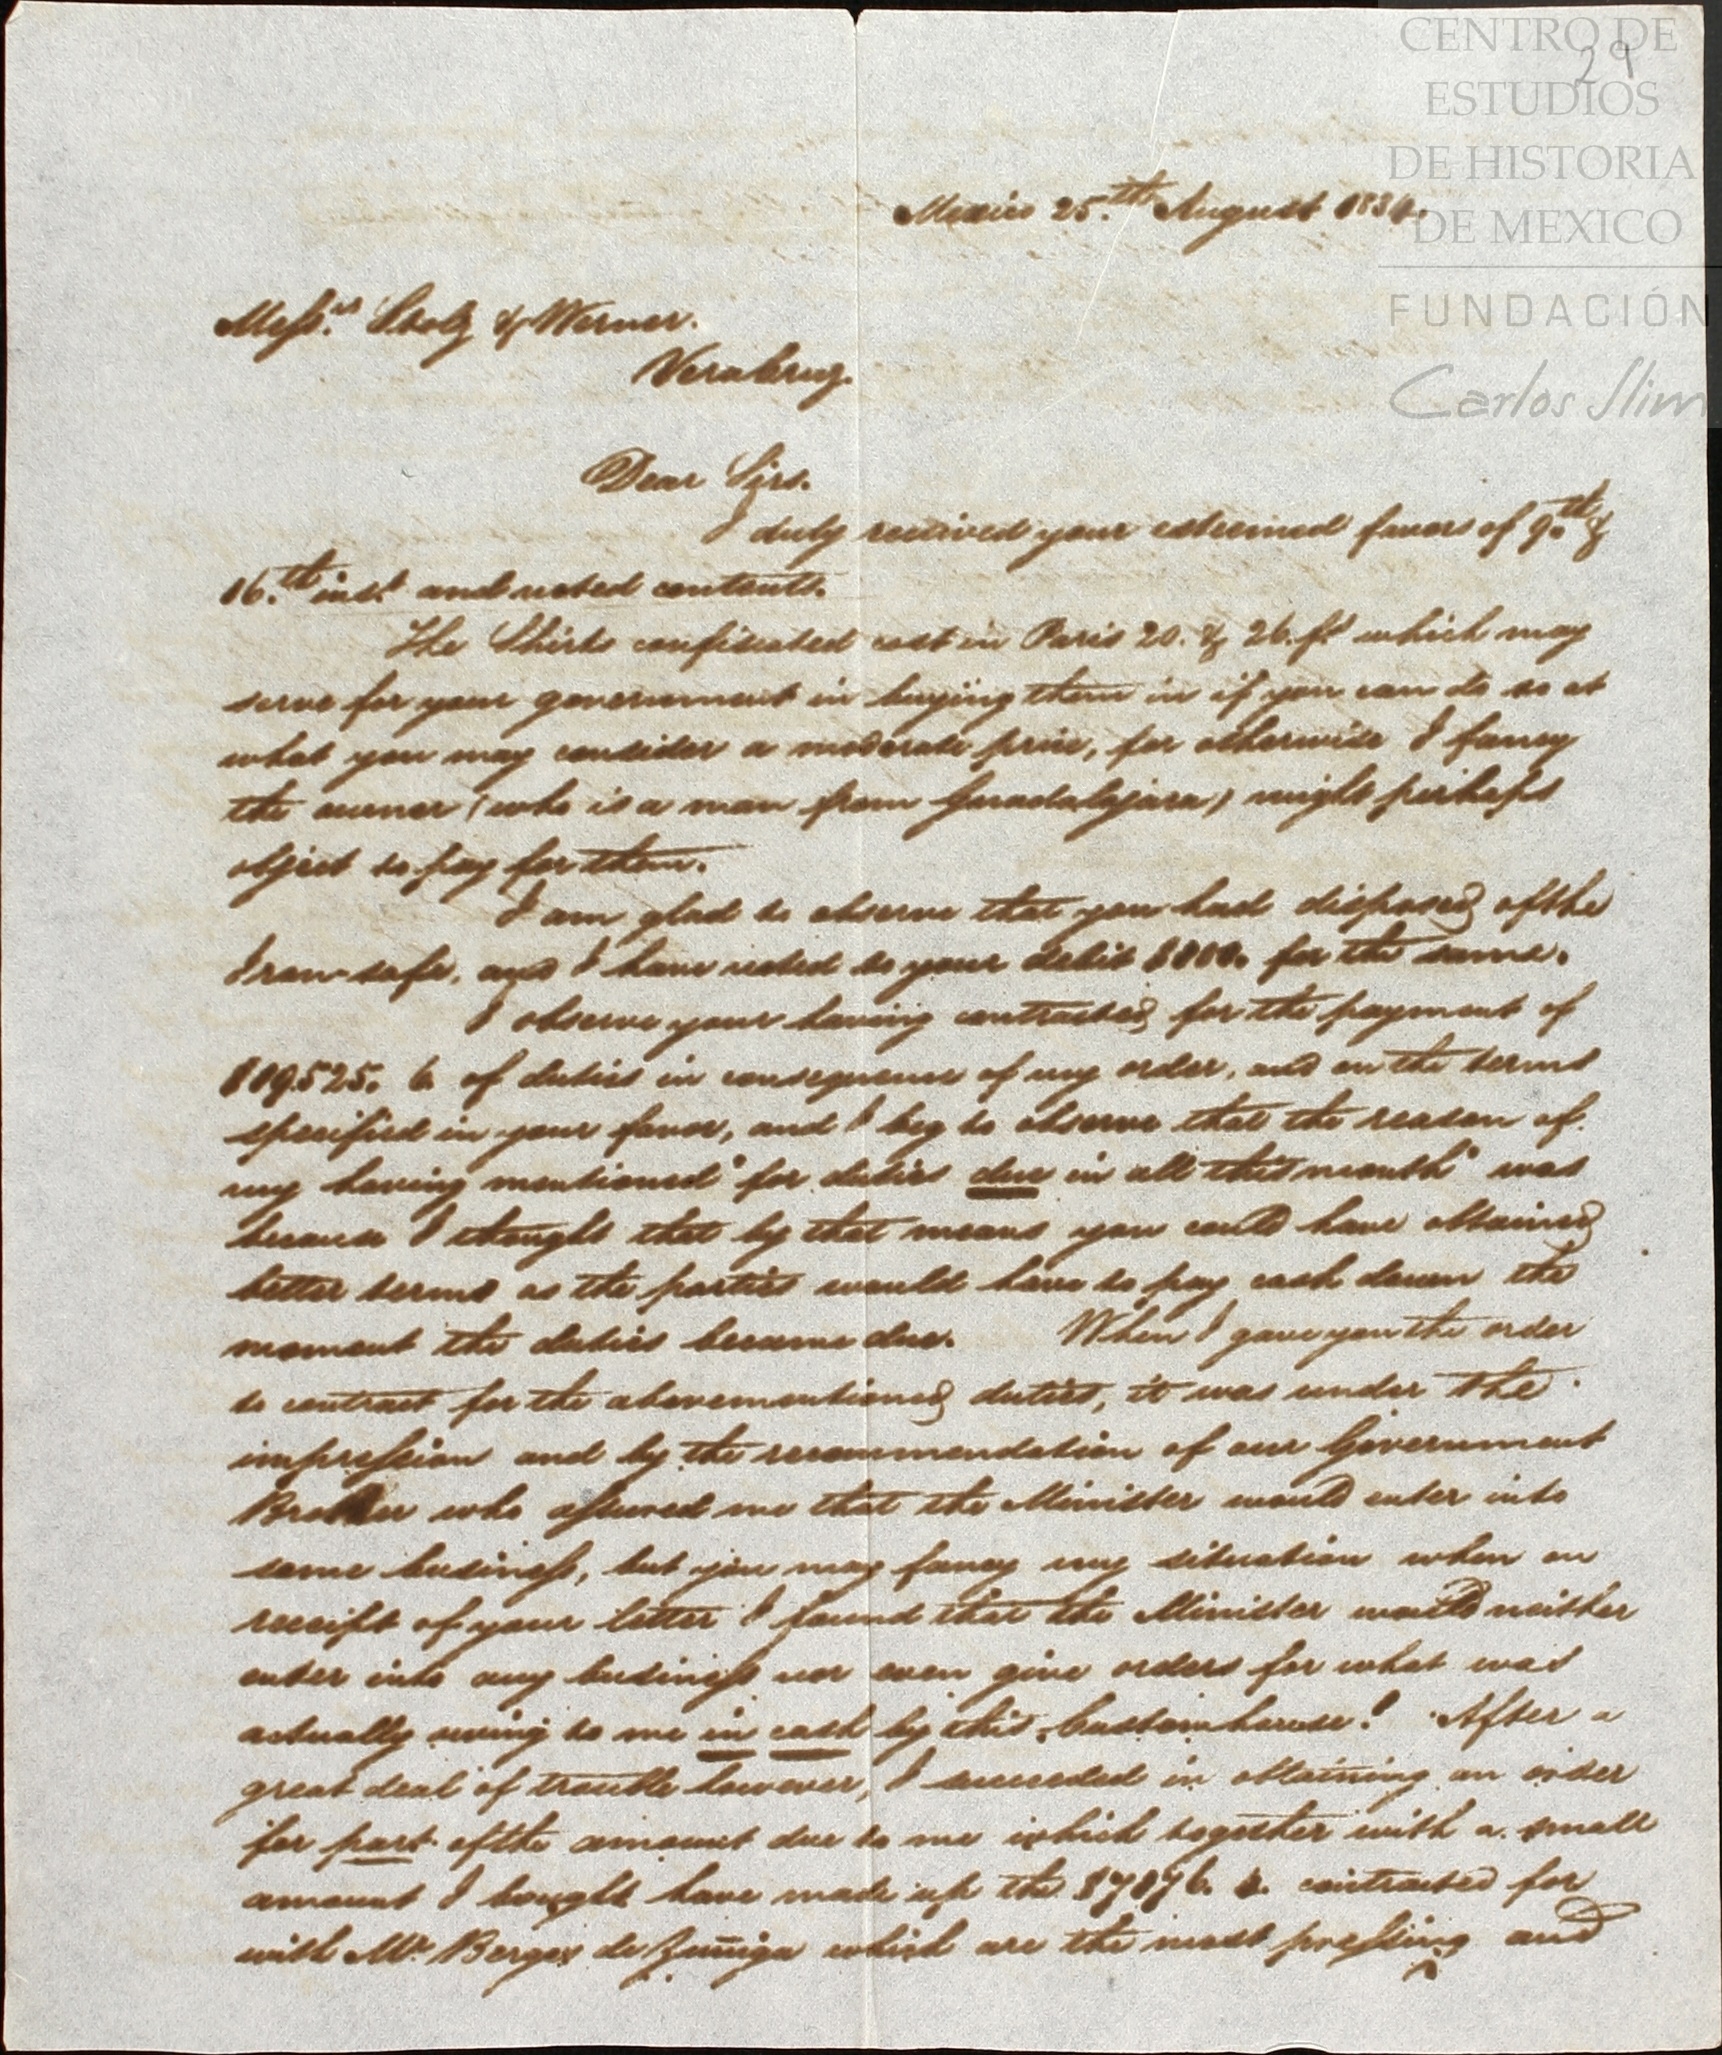 CENTRO DE
ESTUDIOS
DE HISTORIA
DE MEXICO
FUNDACIÓN
Carlos Slim
29
Mexico 25.th August 1834.
Messrs. Stolz & Werner.
Veracruz.
Dear Sirs.
I duly received your esteemed favors of 9.th &
16.th inst. and noted contents.
The Shirts confiscated cost in Paris 20. & 26. fs which may
serve for your government in buying them in if you can do so at
what you may consider a moderate price, for otherwise I fancy
the owner (who is a man from Guadalajara) might perhaps
object to pay for them.
I am glad to observe that you had disposed of the
Iron-safe, and I have noted to your debit $100. for the same.
I observe your having contracted for the payment of
$19525. 6. of duties in consequence of my order, and on the terms
specified in your favor, and I beg to observe that the reason of
my having mentioned "for duties due in all this month" was
because I thought that by that means you could have obtained
better terms as the parties would have to pay cash down the
moment the duties became due. When I gave you the order
to contract for the abovementioned duties, it was under the
impression and by the recommendation of our Government
Broker who assured me that the Minister would enter into
some business, but you may fancy my situation when on
receipt of your letter I found that the Minister would neither
enter into any business nor even give orders for what was
actually owing to me in cash by this Customhouse! After a
great deal of trouble however, I succeeded in obtaining an order
for part of the amount due to me which together with a small
amount I bought have made up the $7076. contracted for
with Mr. Berges de Zuñiga which are the most pressing and